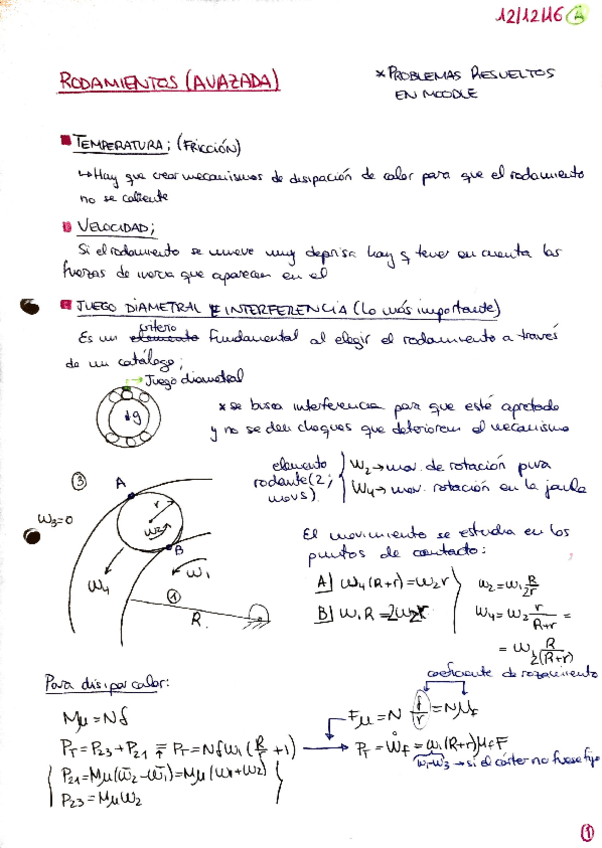 12/12/16 A
RODAMIENTOS (AVAZADA)
* PROBLEMAS RESUELTOS
EN MOODLE
TEMPERATURA; (FRICCIÓN)
↳ Hay que crear mecanismos de disipación de calor para que el rodamiento
no se caliente
VELOCIDAD;
Si el rodamiento se mueve muy deprisa hay q tener en cuenta las
fuerzas de inercia que aparecen en el
JUEGO DIAMETRAL E INTERFERENCIA (Lo más importante)
criterio
Es un elemento fundamental al elegir el rodamiento a través
de un catálogo;
→ Juego diametral
g
* se busca interferencia para que esté apretado
y no se den choques que deterioren el mecanismo
elemento
rodante (2;
movs)
W2 → mov. de rotación pura
W4 → mov. rotación en la jaula
3
A
r
W3=0
W2
B
W4
W1
1
R
El movimiento se estudia en los
puntos de contacto:
A] W4 (R+r) = W2 r
B] W1 R = 2W2 r
W2 = W1 R/2r
W4 = W2 r/R+r =
= W1 R/2(R+r)
Para disipar calor:
coeficiente de rozamiento
Mμ = Nδ
Fμ = N δ/r = Nμf
PT = P23 + P21 = PT = Nδω1 (R/r + 1)
PT = Wf = ω1 (R+r) μf F
P21 = Mμ (ω2 - ω1) = Mμ (ω1 + ω2)
ω1-ω3 → si el cárter no fuese fijo
P23 = Mμ ω2
1